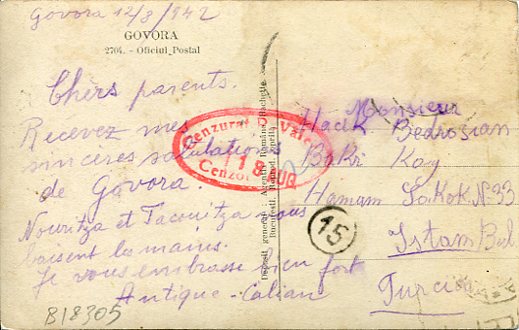 Govora 12/8/942
GOVORA
2704. - Oficiul Postal
Chers parents.
Recevez mes
sinceres salutations
de Govora.
Nouritza et Tacouitza vous
baisent les mains.
Je vous embrasse bien fort
Antique-Calian
B18305
Cenzurat
18 AUG
Cenzor
15
Monsieur
Hacik Bedrosian
Bakir Kay
Hamam Sokok N. 33
Istambul
Turcia